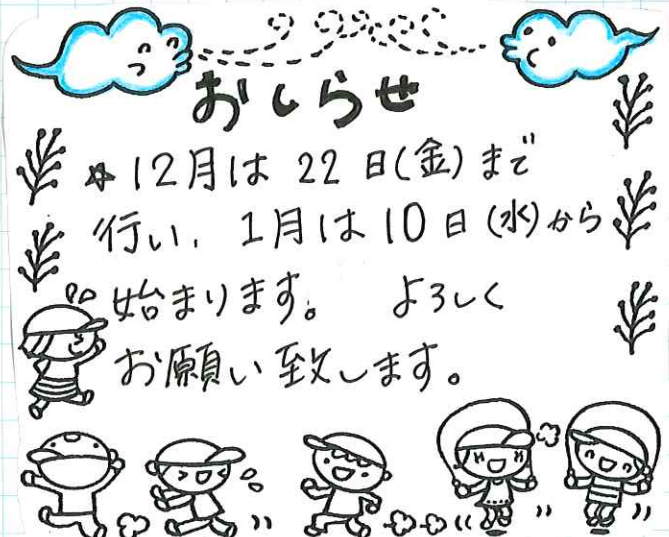 おしらせ
☆12月は 22日(金)まで
行い、1月は10日(水)から
始まります。 よろしく
お願い致します。